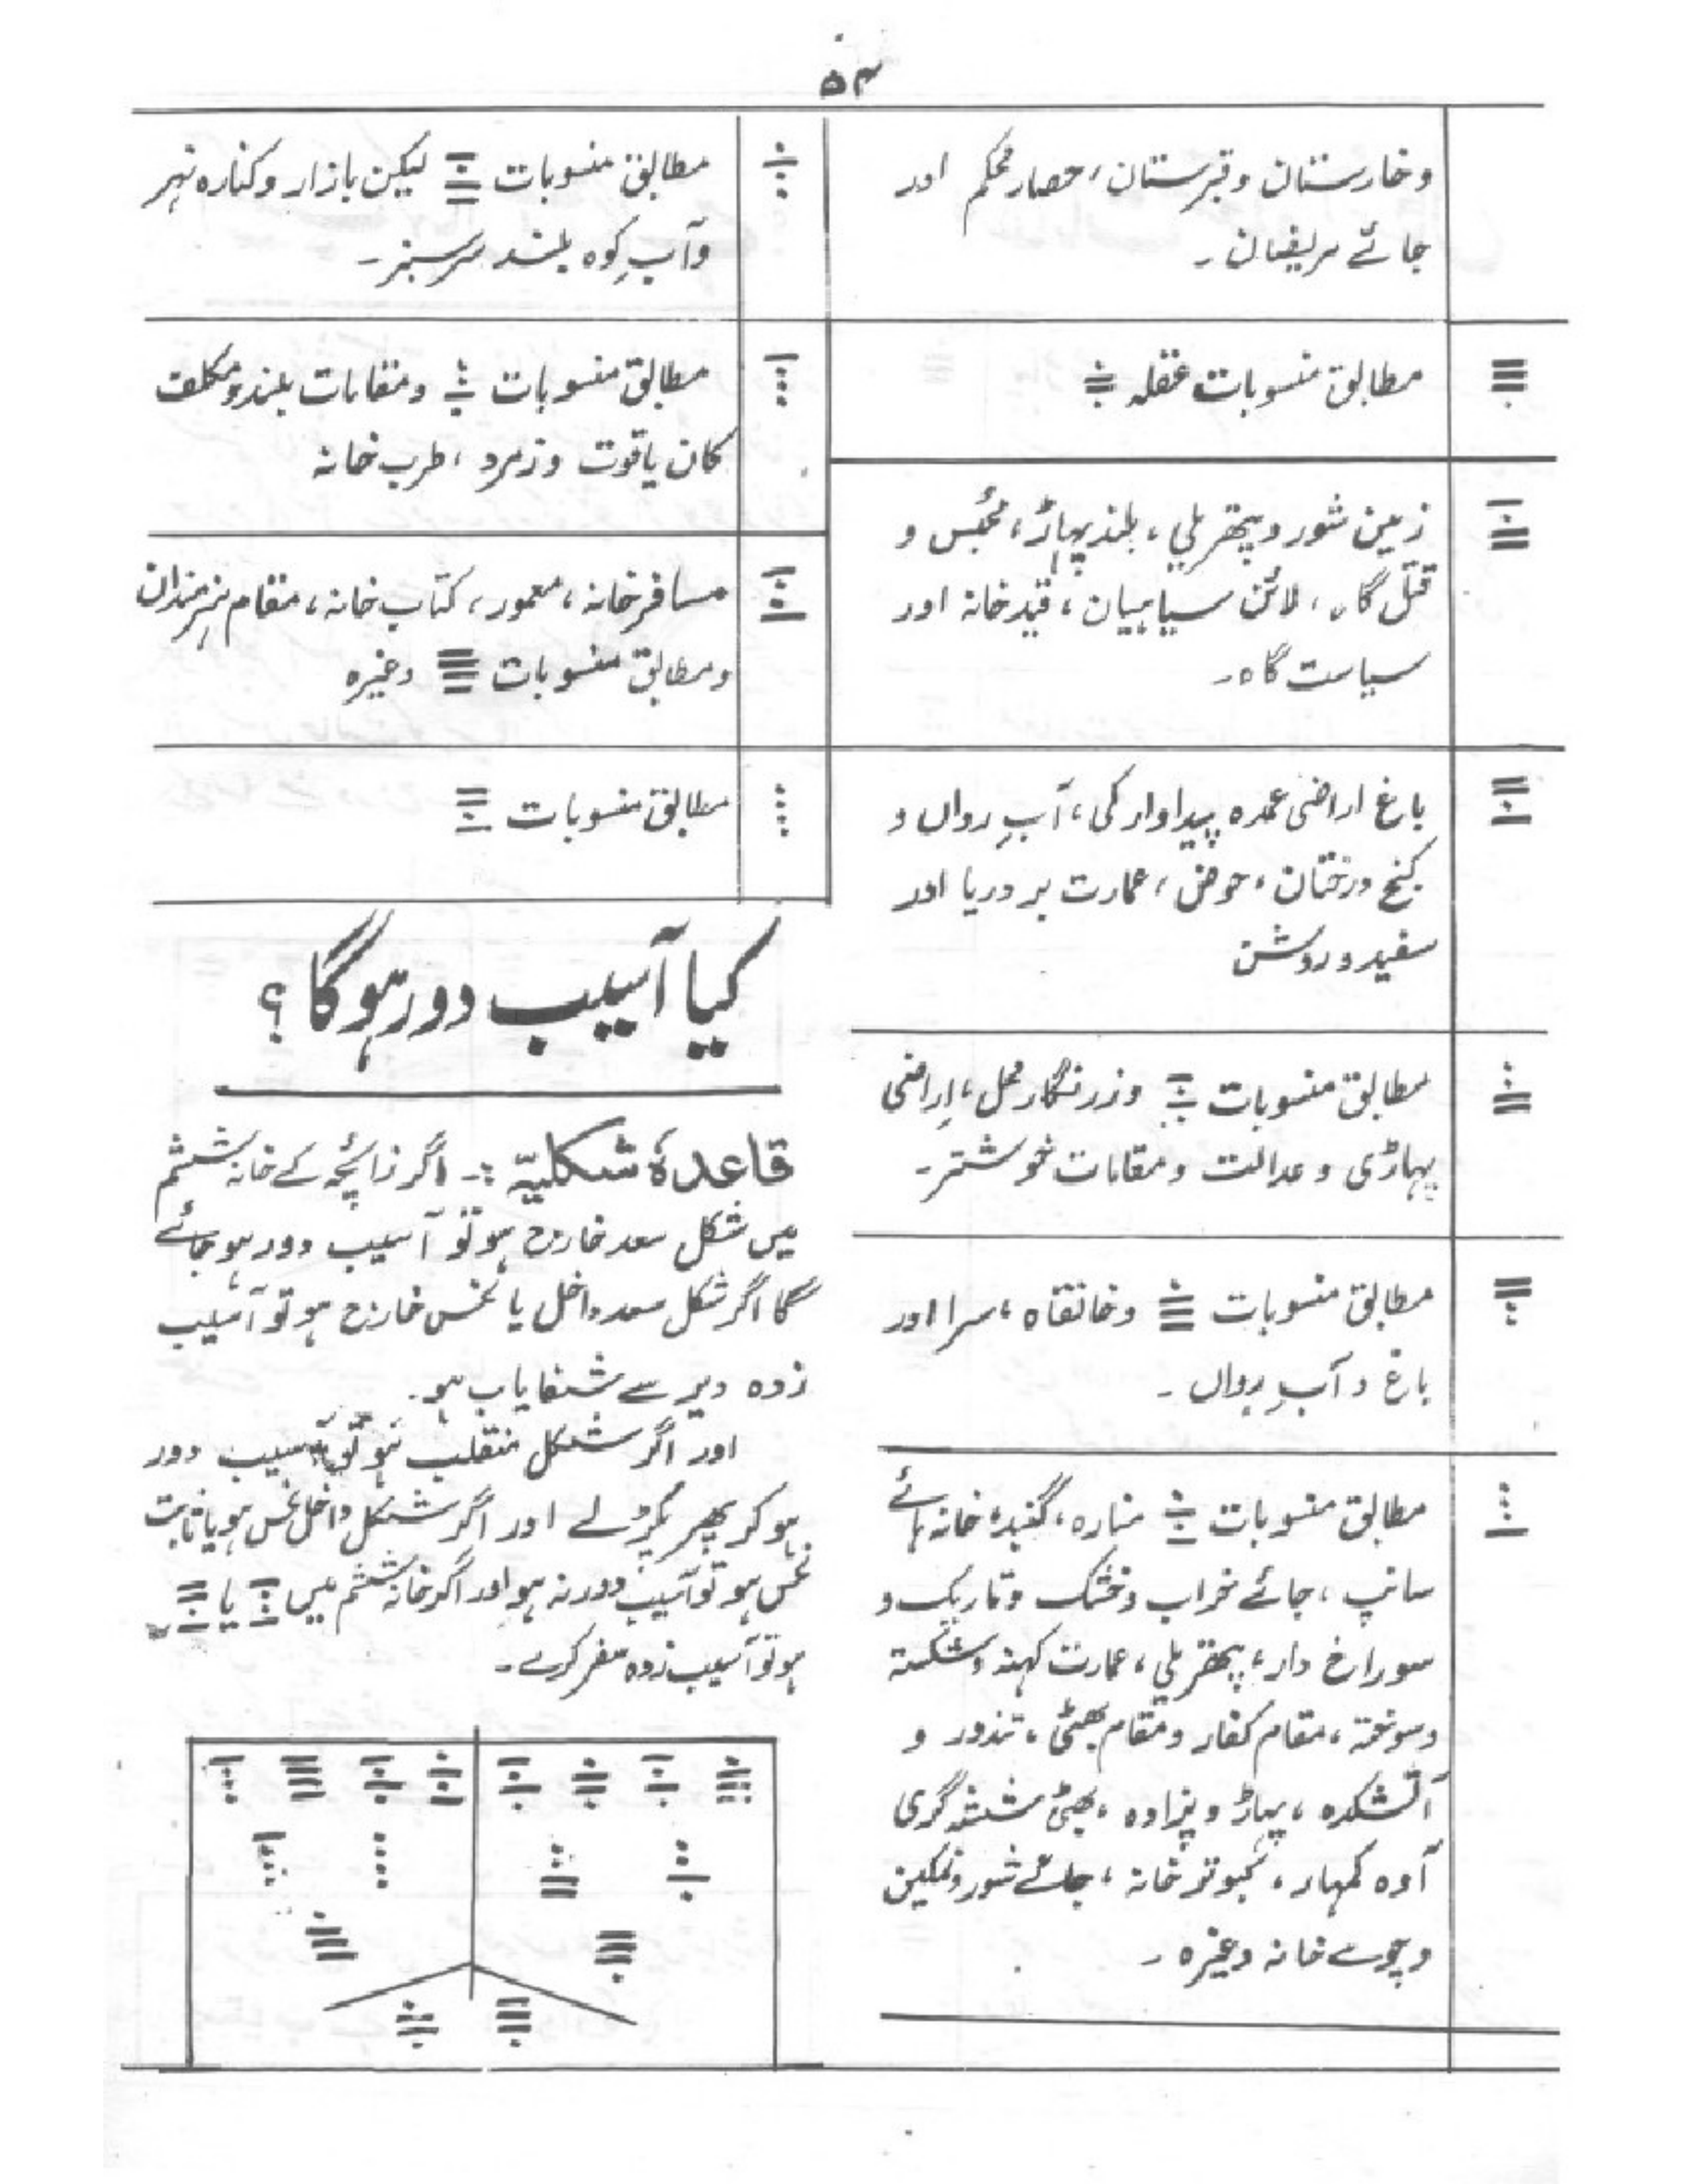 ۵۴
وخارستان وقبرستان، حصار محکم اور
جائے مریضان۔
مطابق منسوبات عقلہ
زمین شور و پتھریلی، بلند پہاڑ، مَحبس و
قتل گاہ، لائن سپاہیان، قیدخانہ اور
سیاست گاہ۔
باغ اراضی عمدہ پیداوار کی، آبِ رواں و
کنج درختان، حوض، عمارت بر دریا اور
سفید و روشن
مطابق منسوبات وزرنگار محل، اراضی
پہاڑی و عدالت ومقامات خوشتر۔
مطابق منسوبات وخانقاہ، سرا اور
باغ و آبِ رواں۔
مطابق منسوبات منارہ، گنبد، خانہ ہائے
سانپ، جائے خراب وخشک وتاریک و
سوراخ دار، پتھریلی، عمارت کہنہ وشکستہ
وسوختہ، مقام کفار ومقام بھٹی، تندور و
آتشکدہ، پہاڑ و پزاوہ، بھٹی شیشہ گری
آوہ کمہار، کبوتر خانہ، جائے شور ونمکین
و چوہے خانہ وغیرہ۔
مطابق منسوبات لیکن بازار وکنارہ نہر
وآبِ کوہ بلند سرسبز۔
مطابق منسوبات ومقامات بلند ومکلف
کان یاقوت وزمرد، طرب خانہ
مسافرخانہ، معمور، کتاب خانہ، مقام ہنرمندان
ومطابق منسوبات وغیرہ
مطابق منسوبات
کیا آسیب دور ہوگا؟
قاعدۂ شکلیّہ :۔ اگر زائچہ کے خانہ ششم
میں شکل سعد خارج ہو تو آسیب دور ہو جائے
گا اگر شکل سعد داخل یا نحس خارج ہو تو آسیب
زدہ دیر سے شفایاب ہو۔
اور اگر شکل منقلب ہو تو آسیب دور
ہو کر پھر پکڑ لے اور اگر شکل داخل نحس ہو یا ثابت
نحس ہو تو آسیب دور نہ ہو اور اگر خانہ ششم میں یا
ہو تو آسیب زدہ سفر کرے۔